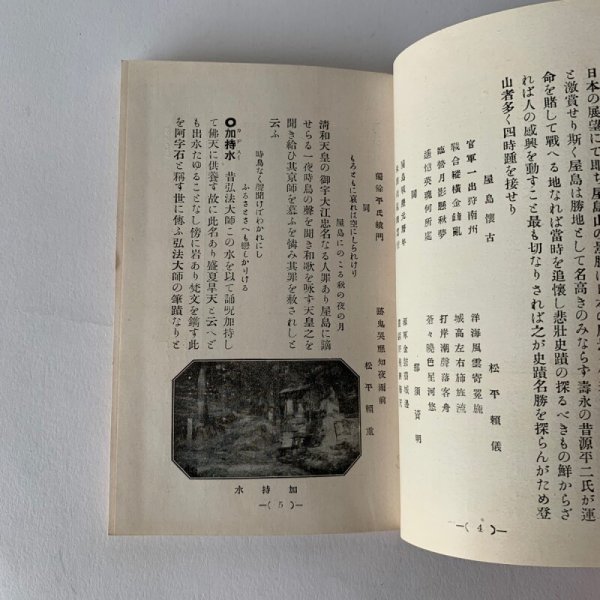 日本の展望にて即ち屋島山の景勝に
と激賞せり斯く屋島は勝地として名高きのみならす壽永の昔源平二氏が運
命を賭して戰へる地なれば當時を追懷し悲壯史蹟の探るべきもの鮮からざ
れば人の感興を動すこと最も切なりされば之が史蹟名勝を探らんがため登
山者多く四時踵を接せり
屋島懷古
松平賴儀
官軍一出狩南州
洋海風雲寄冕旒
戰合縱橫金鏑亂
城高左右旆旌流
臨營月影懸秋夢
打岸潮聲落客舟
遙憶英魂何所處
蒼々曉色星河悠
同
那須資明
同
松平賴重
もろともに哀れは空にしられけり
屋島にのこる秋の夜の月
淸和天皇の御宇大江忠名なる人罪あり屋島に謫
せらる一夜時鳥の聲を聞き和歌を咏す天皇之を
聞き給ひ其京師を慕ふを憐み其罪を赦されしと
云ふ
時鳥なく聲聞けばわかれにし
ふるさとさへも戀しかりける
◎加持水 昔弘法大師この水を以て誦呪加持し
て佛天に供養す故に此名あり盛夏旱天と云へど
も出水たゆることなし傍に岩あり梵文を鐫す此
を阿字石と稱す世に傳ふ弘法大師の筆蹟なりと
加持水
—( 5 )—
—( 4 )—